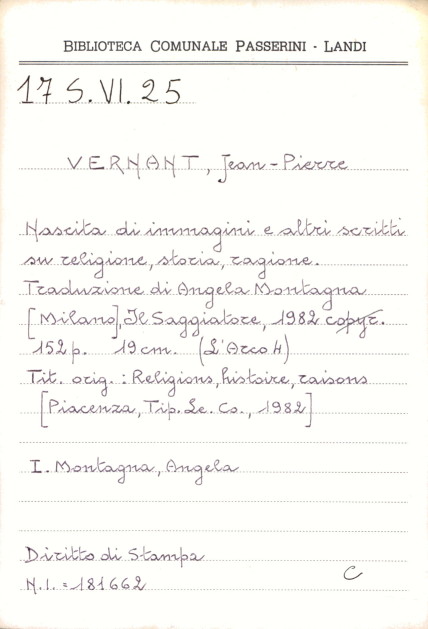 BIBLIOTECA COMUNALE PASSERINI - LANDI
17 S.VI.25
VERNANT, Jean-Pierre
Nascita di immagini e altri scritti
su religione, storia, ragione.
Traduzione di Angela Montagna
[Milano], Il Saggiatore, 1982 copyr.
152 p. 19 cm. (L'Arco 4)
Tit. orig.: Religions, histoire, raisons
[Piacenza, Tip. Le. Co., 1982]
I. Montagna, Angela
Diritto di Stampa
N.I. = 181662
C